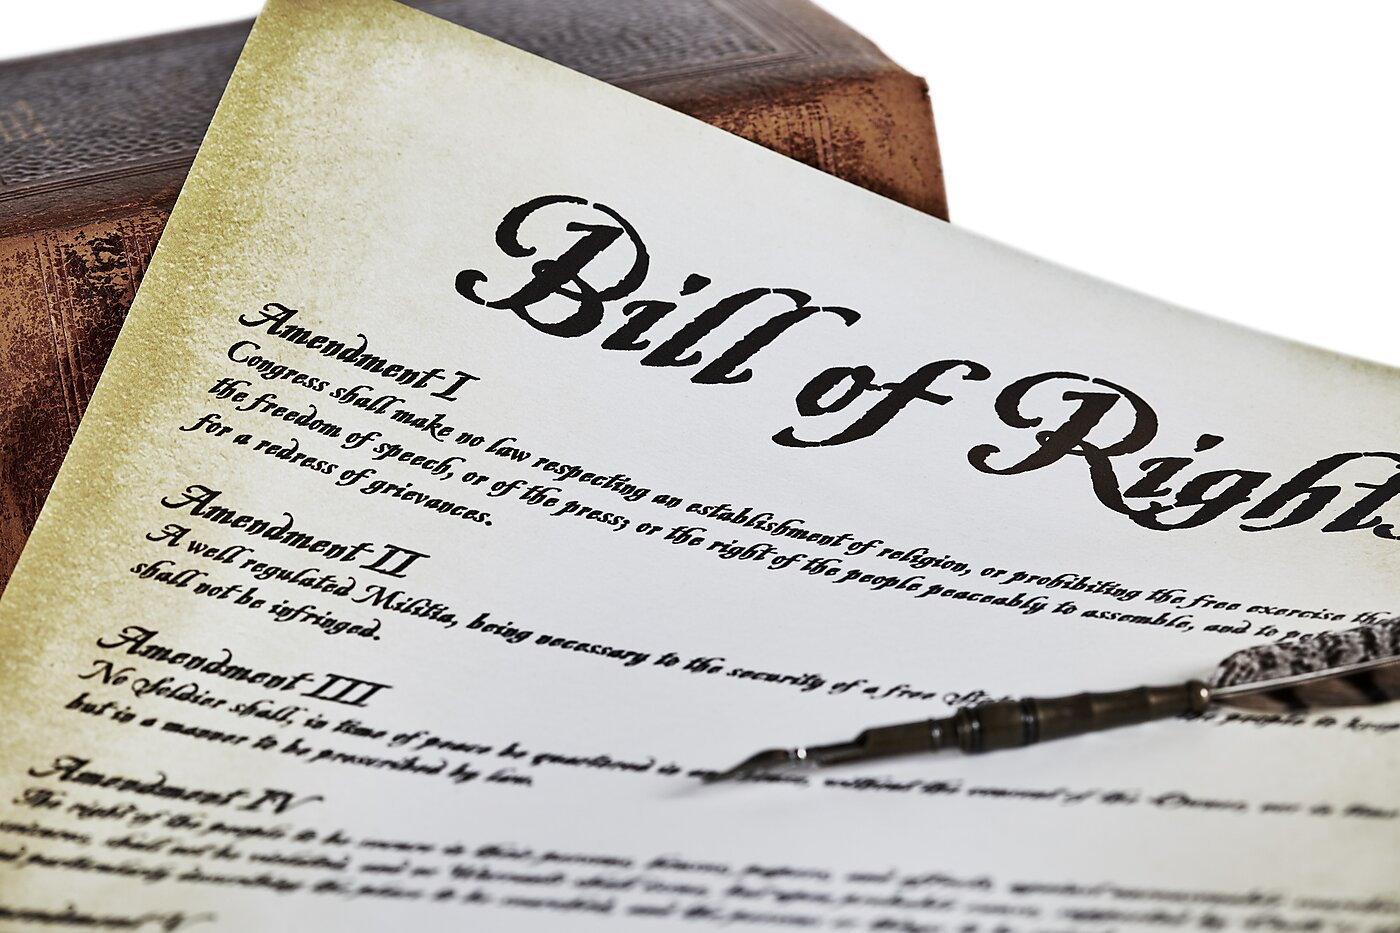 Bill of Rights
Amendment I
Congress shall make no law respecting an establishment of religion, or prohibiting the free exercise
the freedom of speech, or of the press; or the right of the people peaceably to assemble, and to
for a redress of grievances.
Amendment II
A well regulated Militia, being necessary to the security of a free the people to keep
shall not be infringed.
Amendment III
No Soldier shall, in time of peace be quartered in without the consent of the Owner, nor in time
but in a manner to be prescribed by law.
Amendment IV
The right of the people to be secure in their persons, houses, papers, and effects, against unreasonable
shall not be violated, and no Warrants shall issue, but upon probable cause, supported by
particularly describing the place to be searched, and the persons or things to be
Amendment V